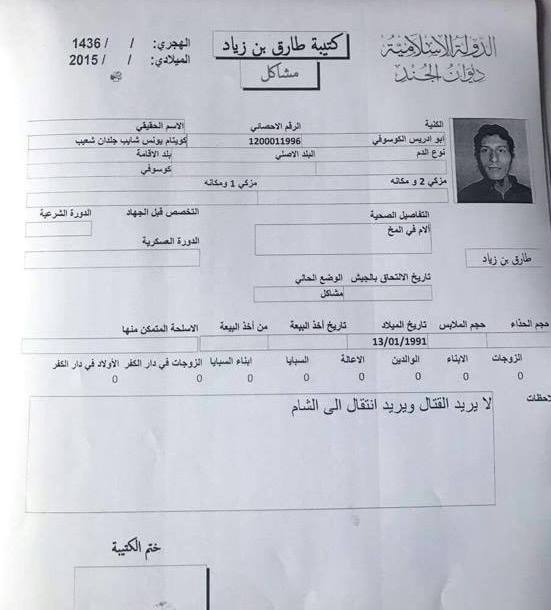 الدولة الإسلامية
ديوان الجند
كتيبة طارق بن زياد
مشاكل
الهجري: / / 1436
الميلادي: / / 2015
الكنية
الرقم الاحصائي
الاسم الحقيقي
ابو ادريس الكوسوفي
1200011996
كويتام يونس شايب جلدان شعيب
نوع الدم
البلد الاصلي
بلد الاقامة
كوسوفي
مزكي 2 و مكانه
مزكي 1 ومكانه
التفاصيل الصحية
التخصص قبل الجهاد
الدورة الشرعية
آلام في المخ
الدورة العسكرية
طارق بن زياد
تاريخ الالتحاق بالجيش
الوضع الحالي
مشاكل
حجم الحذاء
حجم الملابس
تاريخ الميلاد
تاريخ أخذ البيعة
من أخذ البيعة
الاسلحة المتمكن منها
13/01/1991
الزوجات
الابناء
الوالدين
الاعالة
السبايا
ابناء السبايا
الزوجات في دار الكفر
الأولاد في دار الكفر
0 0 0 0 0 0 0 0
لاحظات
لا يريد القتال ويريد انتقال الى الشام
ختم الكتيبة